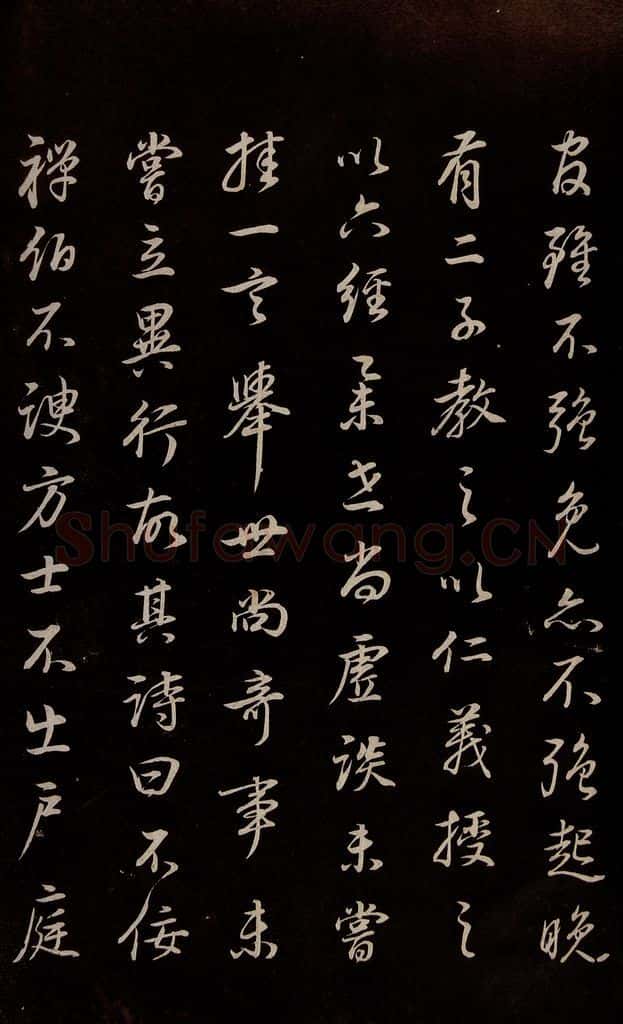 官雖不強免亦不強起晚
有二子教之以仁義授之
以六經舉世尚虛談未嘗
挂一言舉世尚奇事未
嘗立異行故其詩曰不佞
禪伯不諛方士不出戶庭
Shufawang.CN